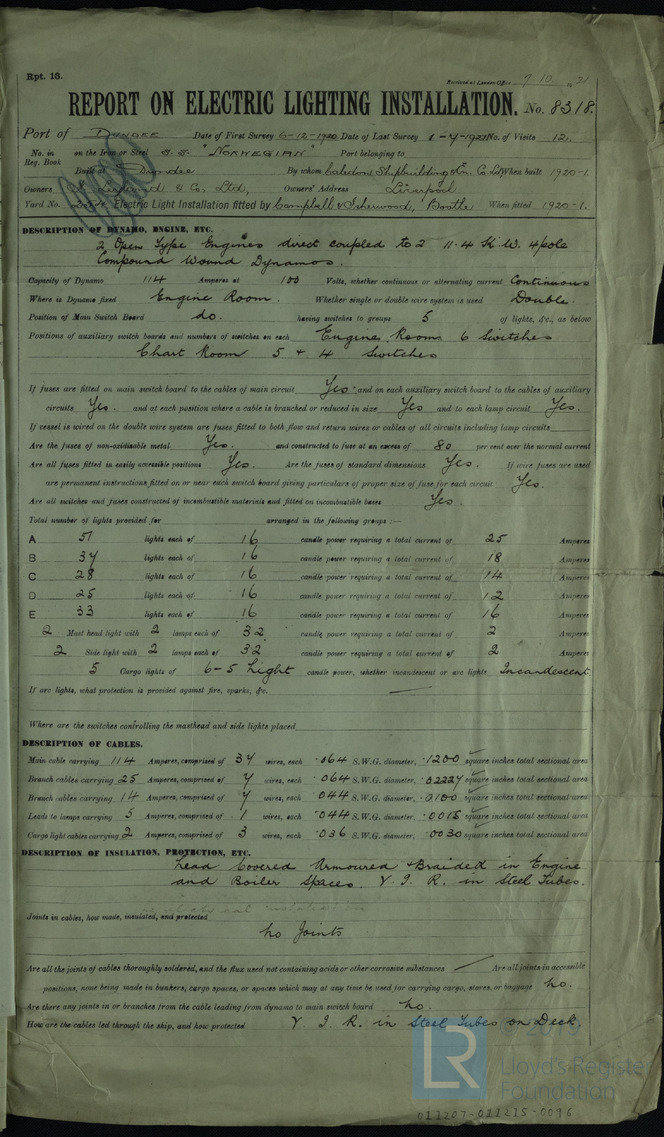 Rpt. 13.
Received at London Office 7 10 21
REPORT ON ELECTRIC LIGHTING INSTALLATION. No. 8318.
Port of Dundee Date of First Survey 6-12-1920 Date of Last Survey 1-4-1921 No. of Visits 12.
No. in on the Iron or Steel S.S. "Norwegian" Port belonging to
Reg. Book
Built at Dundee By whom Caledon Shipbuilding & En. Co Ld When built 1920-1.
Owners Leyland & Co. Ltd, Owners' Address Liverpool
Yard No. Electric Light Installation fitted by Campbell & Isherwood, Bootle When fitted 1920-1.
DESCRIPTION OF DYNAMO, ENGINE, ETC.
2 Open Type Engines direct coupled to 2 11.4 K.W. 4 pole
Compound Wound Dynamos.
Capacity of Dynamo 114 Amperes at 100 Volts, whether continuous or alternating current Continuous
Where is Dynamo fixed Engine Room. Whether single or double wire system is used Double.
Position of Main Switch Board do. having switches to groups 5 of lights, &c., as below
Positions of auxiliary switch boards and numbers of switches on each Engine Room 6 Switches
Chart Room 5 & 4 Switches
If fuses are fitted on main switch board to the cables of main circuit Yes and on each auxiliary switch board to the cables of auxiliary
circuits Yes. and at each position where a cable is branched or reduced in size Yes and to each lamp circuit Yes.
If vessel is wired on the double wire system are fuses fitted to both flow and return wires or cables of all circuits including lamp circuits
Are the fuses of non-oxidizable metal Yes. and constructed to fuse at an excess of 80 per cent over the normal current
Are all fuses fitted in easily accessible positions Yes. Are the fuses of standard dimensions Yes. If wire fuses are used
are permanent instructions fitted on or near each switch board giving particulars of proper size of fuse for each circuit Yes.
Are all switches and fuses constructed of incombustible materials and fitted on incombustible bases Yes.
Total number of lights provided for arranged in the following groups :—
A 51 lights each of 16 candle power requiring a total current of 25 Amperes
B 37 lights each of 16 candle power requiring a total current of 18 Amperes
C 28 lights each of 16 candle power requiring a total current of 14 Amperes
D 25 lights each of 16 candle power requiring a total current of 12 Amperes
E 33 lights each of 16 candle power requiring a total current of 16 Amperes
2 Mast head light with 2 lamps each of 32 candle power requiring a total current of 2 Amperes
2 Side light with 2 lamps each of 32 candle power requiring a total current of 2 Amperes
5 Cargo lights of 6-5 Light candle power, whether incandescent or arc lights Incandescent.
If arc lights, what protection is provided against fire, sparks, &c. —
Where are the switches controlling the masthead and side lights placed
DESCRIPTION OF CABLES.
Main cable carrying 114 Amperes, comprised of 37 wires, each .064 S.W.G. diameter, .1200 square inches total sectional area
Branch cables carrying 25 Amperes, comprised of 7 wires, each .064 S.W.G. diameter, .02227 square inches total sectional area
Branch cables carrying 14 Amperes, comprised of 7 wires, each .044 S.W.G. diameter, .0100 square inches total sectional area
Leads to lamps carrying 5 Amperes, comprised of 1 wires, each .044 S.W.G. diameter, .0015 square inches total sectional area
Cargo light cables carrying 2 Amperes, comprised of 3 wires, each .036 S.W.G. diameter, .0030 square inches total sectional area
DESCRIPTION OF INSULATION, PROTECTION, ETC.
Lead Covered Armoured & Braided in Engine
and Boiler Spaces. V.I.R. in Steel Tubes.
Joints in cables, how made, insulated, and protected
No Joints
Are all the joints of cables thoroughly soldered, and the flux used not containing acids or other corrosive substances — Are all joints in accessible
positions, none being made in bunkers, cargo spaces, or spaces which may at any time be used for carrying cargo, stores, or baggage No.
Are there any joints in or branches from the cable leading from dynamo to main switch board No.
How are the cables led through the ship, and how protected V.I.R. in Steel Tubes on Deck.
LR
© 2019
Lloyd's Register
Foundation
011207-011215-0096